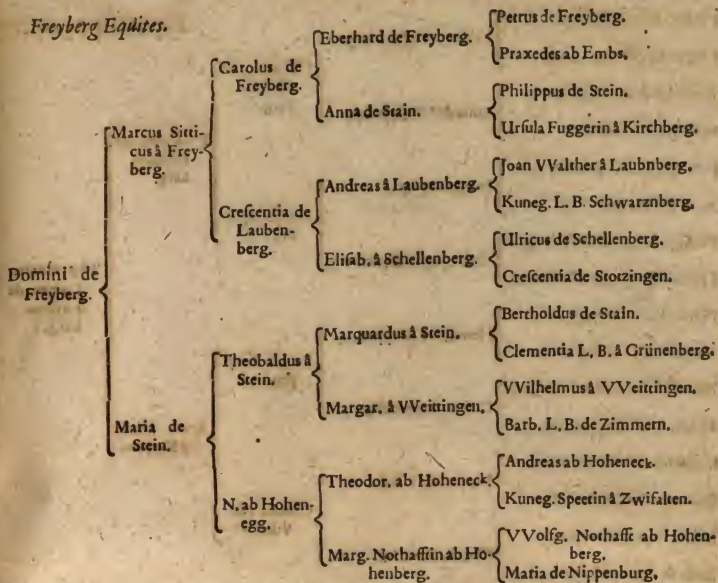 Freyberg Equites.
Domini de
Freyberg.
Marcus Sitti-
cus à Frey-
berg.
Maria de
Stein.
Carolus de
Freyberg.
Crescentia de
Lauben-
berg.
Theobaldus à
Stein.
N. ab Hohen-
egg.
Eberhard de Freyberg.
Anna de Stain.
Andreas à Laubenberg.
Elisab. à Schellenberg.
Marquardus à Stein.
Margar. à VVeittingen.
Theodor. ab Hoheneck.
Marg. Nothafftin ab Ho-
henberg.
Petrus de Freyberg.
Praxedes ab Embs.
Philippus de Stein.
Ursula Fuggerin à Kirchberg.
Joan VValther à Laubnberg.
Kuneg. L. B. Schwarznberg.
Ulricus de Schellenberg.
Crescentia de Stotzingen.
Bertholdus de Stain.
Clementia L. B. à Grünenberg.
VVilhelmus à VVeittingen.
Barb. L. B. de Zimmern.
Andreas ab Hoheneck.
Kuneg. Speetin à Zwifalten.
VVolfg. Nothafft ab Hohen-
berg.
Maria de Nippenburg.